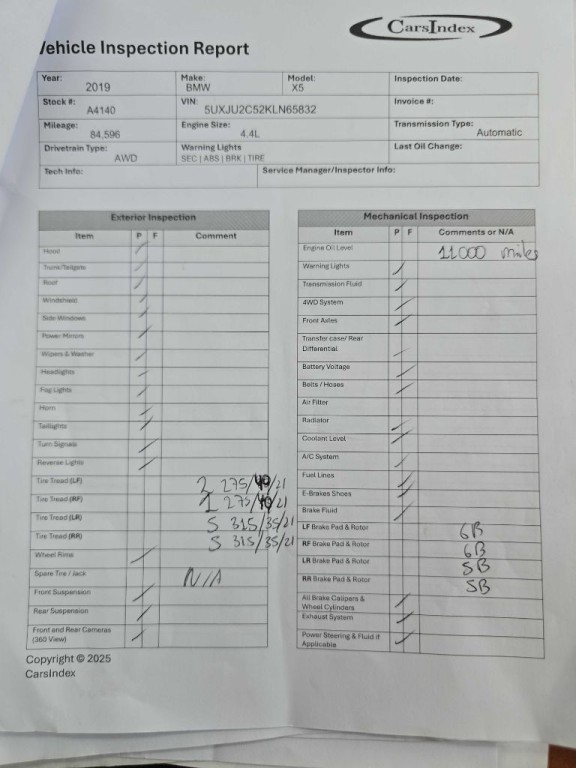 CarsIndex
Vehicle Inspection Report
Year: 2019 Make: BMW Model: X5 Inspection Date:
Stock #: A4140 VIN: 5UXJU2C52KLN65832 Invoice #:
Mileage: 84,596 Engine Size: 4.4L Transmission Type: Automatic
Drivetrain Type: AWD Warning Lights SEC | ABS | BRK | TIRE Last Oil Change:
Tech Info: Service Manager/Inspector Info:
Exterior Inspection
Item P F Comment
Hood
Trunk/Tailgate
Roof
Windshield
Side Windows
Power Mirrors
Wipers & Washer
Headlights
Fog Lights
Horn
Taillights
Turn Signals
Reverse Lights
Tire Tread (LF) 2 275/40/21
Tire Tread (RF) 275/40/21
Tire Tread (LR) 5 315/35/21
Tire Tread (RR) 5 315/35/21
Wheel Rims
Spare Tire / Jack N/A
Front Suspension
Rear Suspension
Front and Rear Cameras
(360 View)
Mechanical Inspection
Item P F Comments or N/A
Engine Oil Level 11000 miles
Warning Lights
Transmission Fluid
4WD System
Front Axles
Transfer case/ Rear
Differential
Battery Voltage
Belts / Hoses
Air Filter
Radiator
Coolant Level
A/C System
Fuel Lines
E-Brakes Shoes
Brake Fluid
LF Brake Pad & Rotor 6B
RF Brake Pad & Rotor 6B
LR Brake Pad & Rotor 5B
RR Brake Pad & Rotor 5B
All Brake Calipers &
Wheel Cylinders
Exhaust System
Power Steering & Fluid if
Applicable
Copyright © 2025
CarsIndex